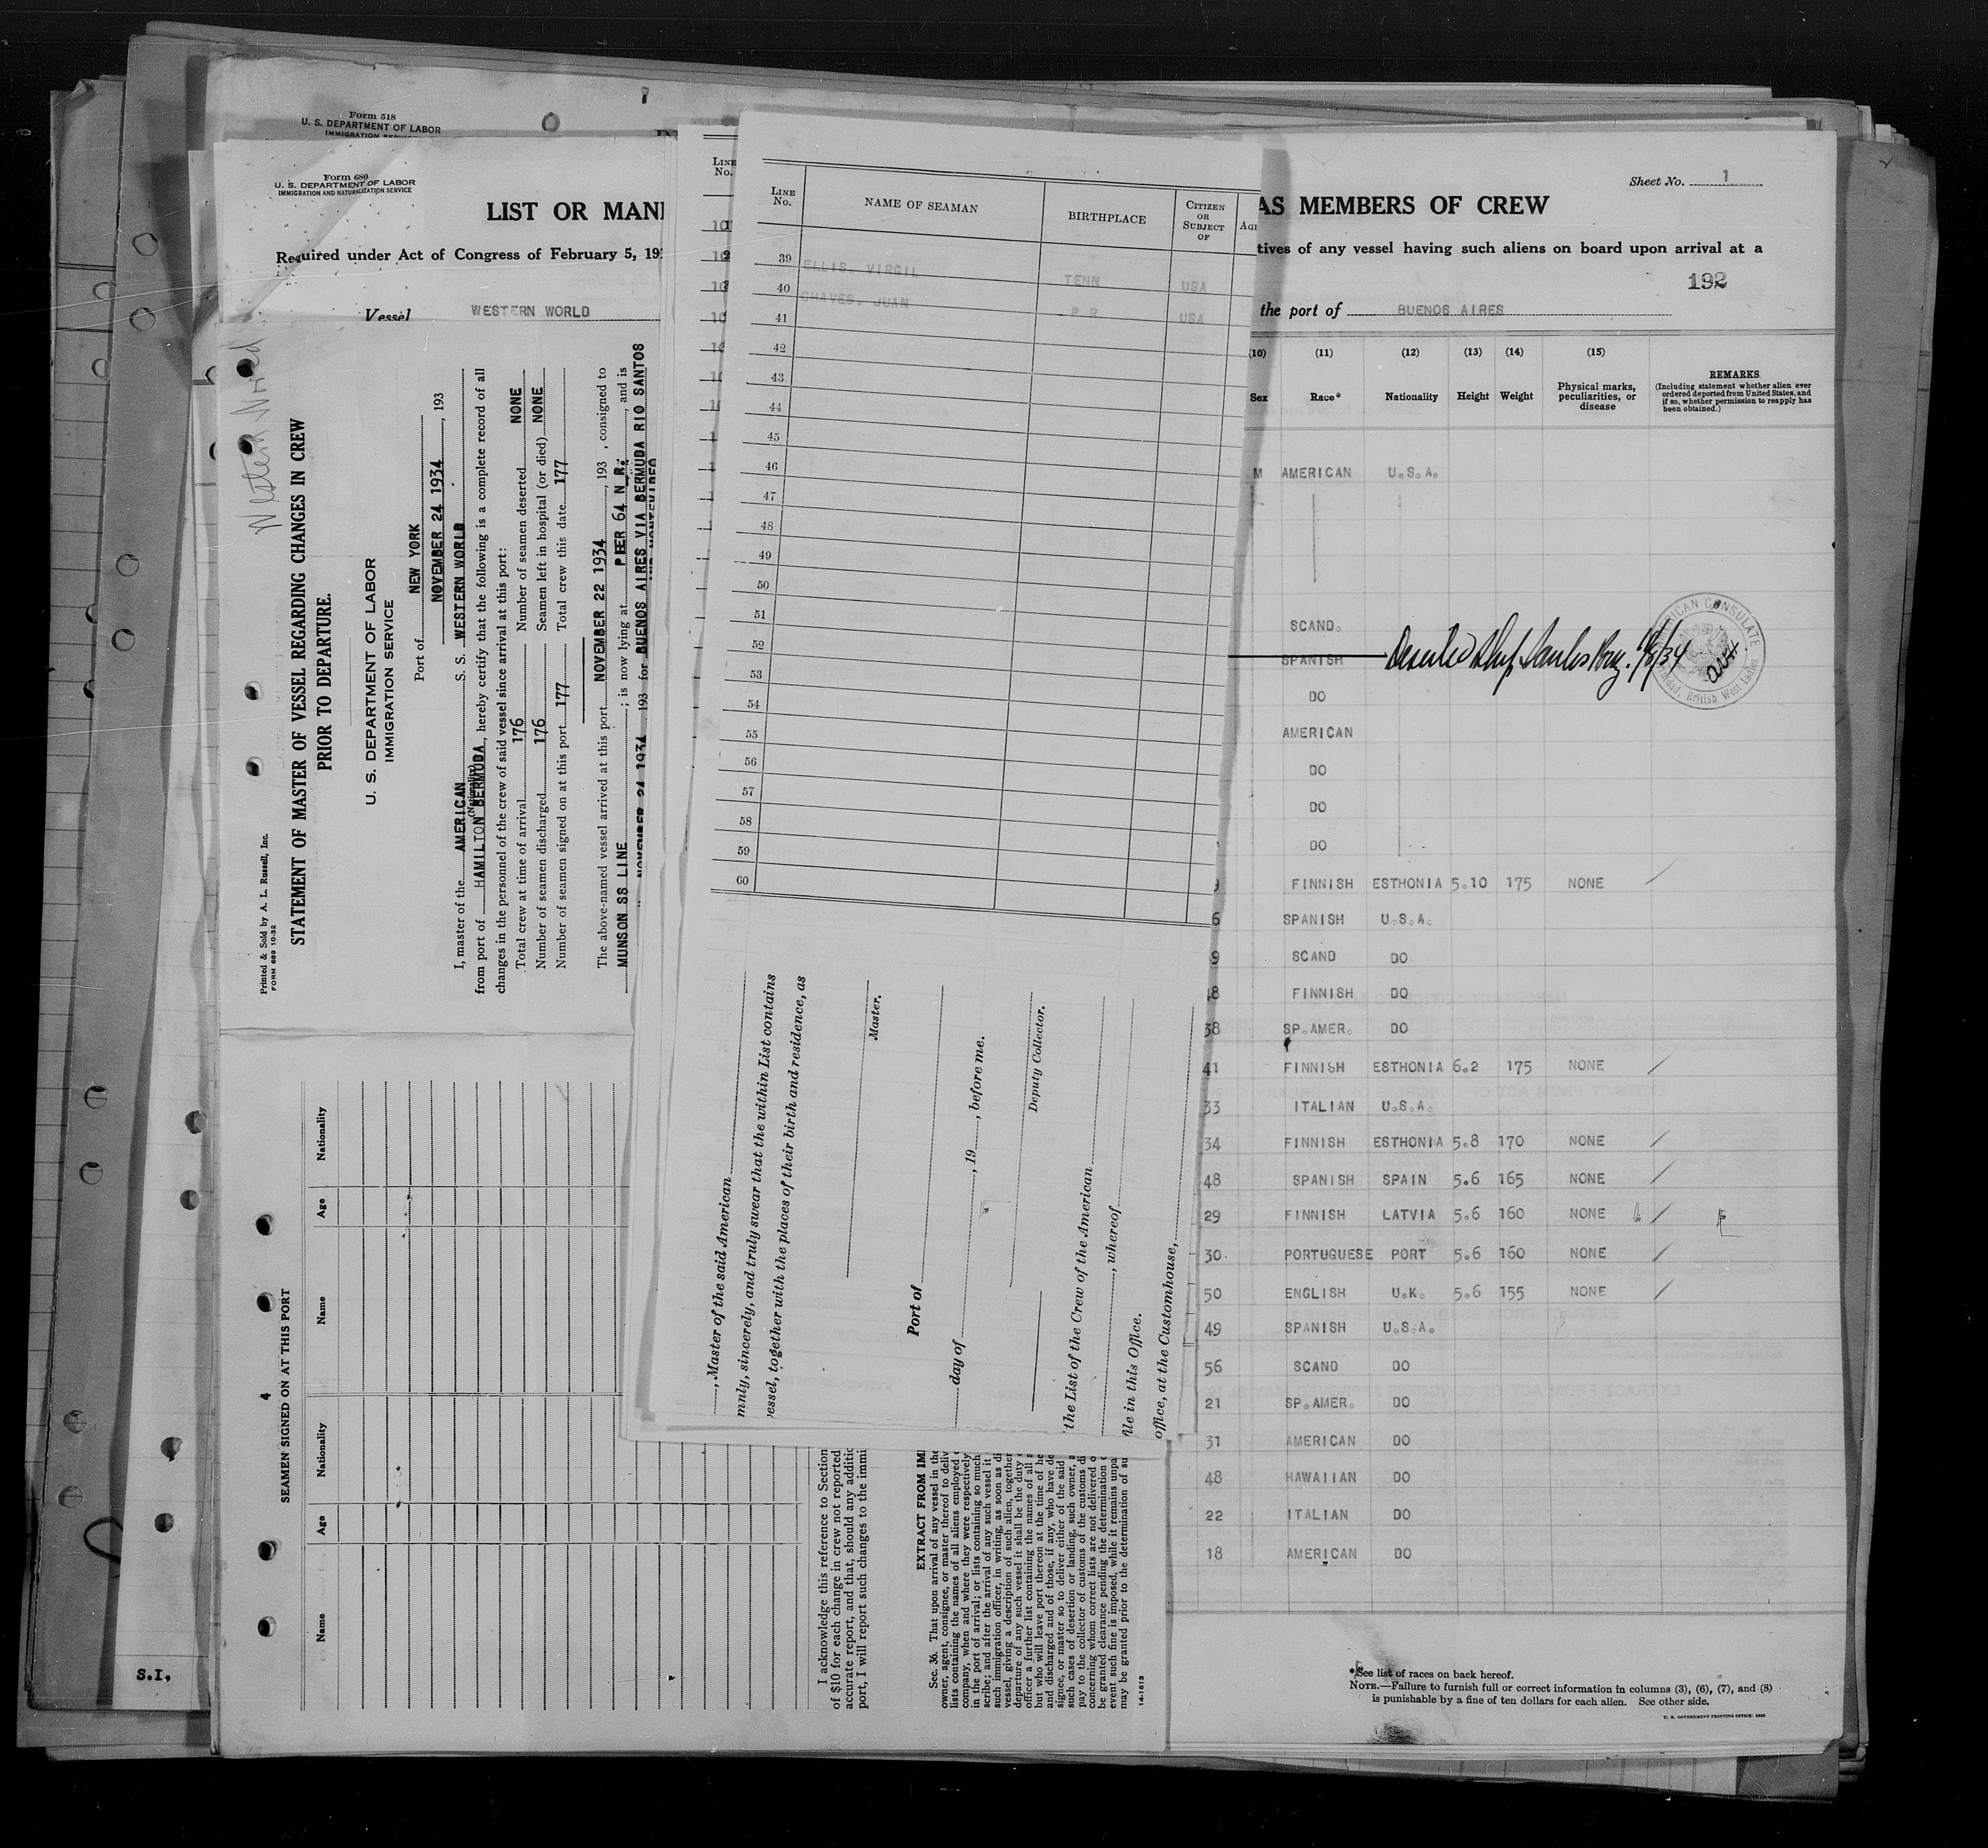 Form 518
U. S. DEPARTMENT OF LABOR
IMMIGRATION SERVICE
Form 680
U. S. DEPARTMENT OF LABOR
IMMIGRATION AND NATURALIZATION SERVICE
LIST OR MANI
Required under Act of Congress of February 5, 19
Vessel WESTERN WORLD
Western World
Printed & Sold by A. L. Russell, Inc.
FORM 689 10-32
STATEMENT OF MASTER OF VESSEL REGARDING CHANGES IN CREW
PRIOR TO DEPARTURE.
U. S. DEPARTMENT OF LABOR
IMMIGRATION SERVICE
Port of NEW YORK
NOVEMBER 24 1934, 193
I, master of the AMERICAN S. S. WESTERN WORLD
(Nationality)
from port of HAMILTON BERMUDA, hereby certify that the following is a complete record of all
changes in the personnel of the crew of said vessel since arrival at this port:
Total crew at time of arrival 176 Number of seamen deserted NONE
Number of seamen discharged 176 Seamen left in hospital (or died) NONE
Number of seamen signed on at this port 177 Total crew this date 177
The above-named vessel arrived at this port NOVEMBER 22 1934, 193 , consigned to
MUNSON SS LINE ; is now lying at PIER 64 N R., and is
NOVEMBER 24 1934 193 for BUENOS AIRES VIA BERMUDA RIO SANTOS
AND MONTEVIDEO
SEAMEN SIGNED ON AT THIS PORT 4
Name Age Nationality Name Age Nationality
I acknowledge this reference to Section
of $10 for each change in crew not reported
accurate report, and that, should any additio
port, I will report such changes to the immi
EXTRACT FROM IM
Sec. 36. That upon arrival of any vessel in the
owner, agent, consignee, or master thereof to deliv
lists containing the names of all aliens employed
company, when and where they were respectively
in the port of arrival; or lists containing so much
scribe; and after the arrival of any such vessel it
such immigration officer, in writing, as soon as di
vessel, giving a description of such alien, together
departure of any such vessel it shall be the duty
officer a further list containing the names of all
but who will leave port thereon at the time of he
and discharged and of those, if any, who have de
signee, or master so to deliver either of the said
such cases of desertion or landing, such owner,
pay to the collector of customs of the customs di
concerning whom correct lists are not delivered
be granted clearance pending the determination
event such fine is imposed, while it remains unpa
may be granted prior to the determination of su
14-1613
S.I.
LINE No.
LINE No. NAME OF SEAMAN BIRTHPLACE CITIZEN OR SUBJECT OF AG
39 ELLIS, VIRGIL TENN USA
40 CHAVES, JUAN P R USA
41
42
43
44
45
46
47
48
49
50
51
52
53
54
55
56
57
58
59
60
, Master of the said American
mnly, sincerely, and truly swear that the within List contains
essel, together with the places of their birth and residence, as
Master.
Port of
day of , 19 , before me.
Deputy Collector.
the List of the Crew of the American
, whereof
ile in this Office.
office, at the Customhouse,
Sheet No. 1
AS MEMBERS OF CREW
tives of any vessel having such aliens on board upon arrival at a
192
the port of BUENOS AIRES
(10) (11) (12) (13) (14) (15)
Sex Race* Nationality Height Weight Physical marks, peculiarities, or disease
REMARKS
(Including statement whether alien ever
ordered deported from United States, and
if so, whether permission to reapply has
been obtained.)
M AMERICAN U.S.A.
SCAND.
SPANISH
AMERICAN CONSULATE
Trinidad, British West Indies
DO
AMERICAN
DO
DO
DO
FINNISH ESTHONIA 5.10 175 NONE
6 SPANISH U.S.A.
9 SCAND DO
18 FINNISH DO
38 SP.AMER. DO
41 FINNISH ESTHONIA 6.2 175 NONE
33 ITALIAN U.S.A.
34 FINNISH ESTHONIA 5.8 170 NONE
48 SPANISH SPAIN 5.6 165 NONE
29 FINNISH LATVIA 5.6 160 NONE
30 PORTUGUESE PORT 5.6 160 NONE
50 ENGLISH U.K. 5.6 155 NONE
49 SPANISH U.S.A.
56 SCAND DO
21 SP.AMER. DO
31 AMERICAN DO
48 HAWAIIAN DO
22 ITALIAN DO
18 AMERICAN DO
*See list of races on back hereof.
NOTE.—Failure to furnish full or correct information in columns (3), (6), (7), and (8)
is punishable by a fine of ten dollars for each alien. See other side.
U. S. GOVERNMENT PRINTING OFFICE: 1932